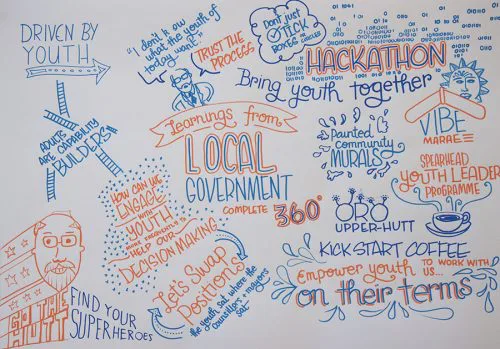 DRIVEN BY
YOUTH
"I don't know
what the youth of
today want"
TRUST THE
PROCESS
DON'T JUST
TICK
BOXES or CIRCLES
HACKATHON
Bring youth together
ADULTS
ARE CAPABILITY
BUILDERS"
Learnings from
LOCAL
GOVERNMENT
COMPLETE 360°
Painted
community
MURALS
VIBE
MARAE
SPEARHEAD
YOUTH LEADER
PROGRAMME
HOW CAN WE
ENGAGE
WITH
YOUTH
MORE FREQUENTLY TO
HELP OUR
DECISION MAKING
ORO
UPPER-HUTT
KICK START COFFEE
Let's Swap
Positions
the youth sat where the
councillors + mayors
sat
EMPOWER YOUTH TO WORK WITH
US...
on their terms
THE
HUTT
FIND YOUR
SUPERHEROES